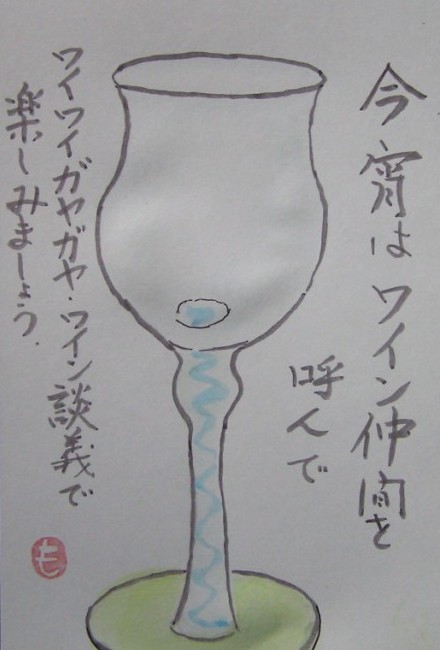 今宵はワイン仲間を
呼んで
ワイワイガヤガヤ・ワイン談義で
楽しみましょう.
も